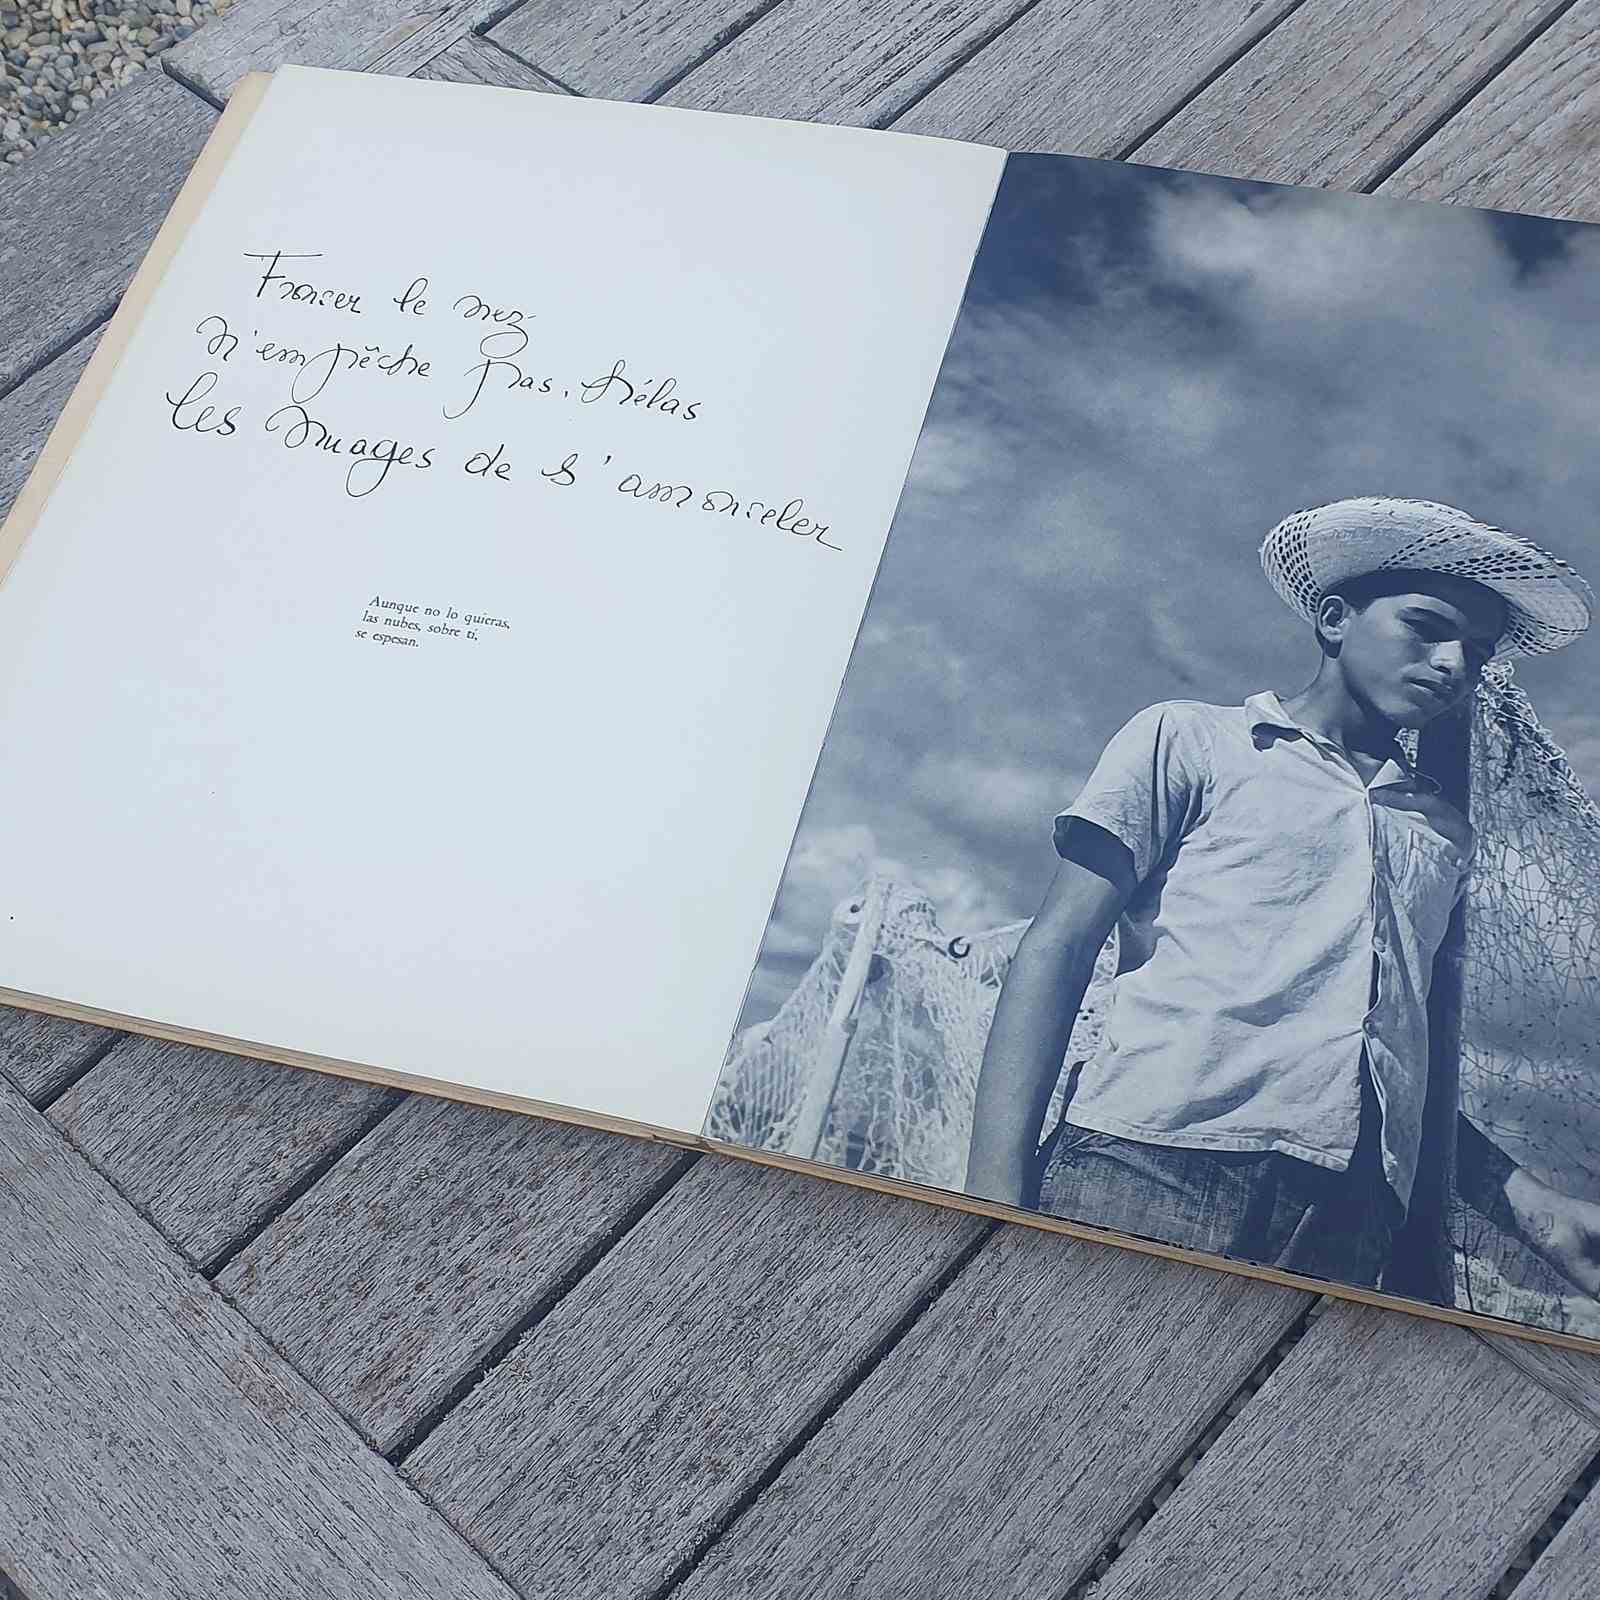 Froncer le nez
n'empêche pas, hélas
les nuages de s'amonceler
Aunque no lo quieras,
las nubes, sobre ti,
se espesan.